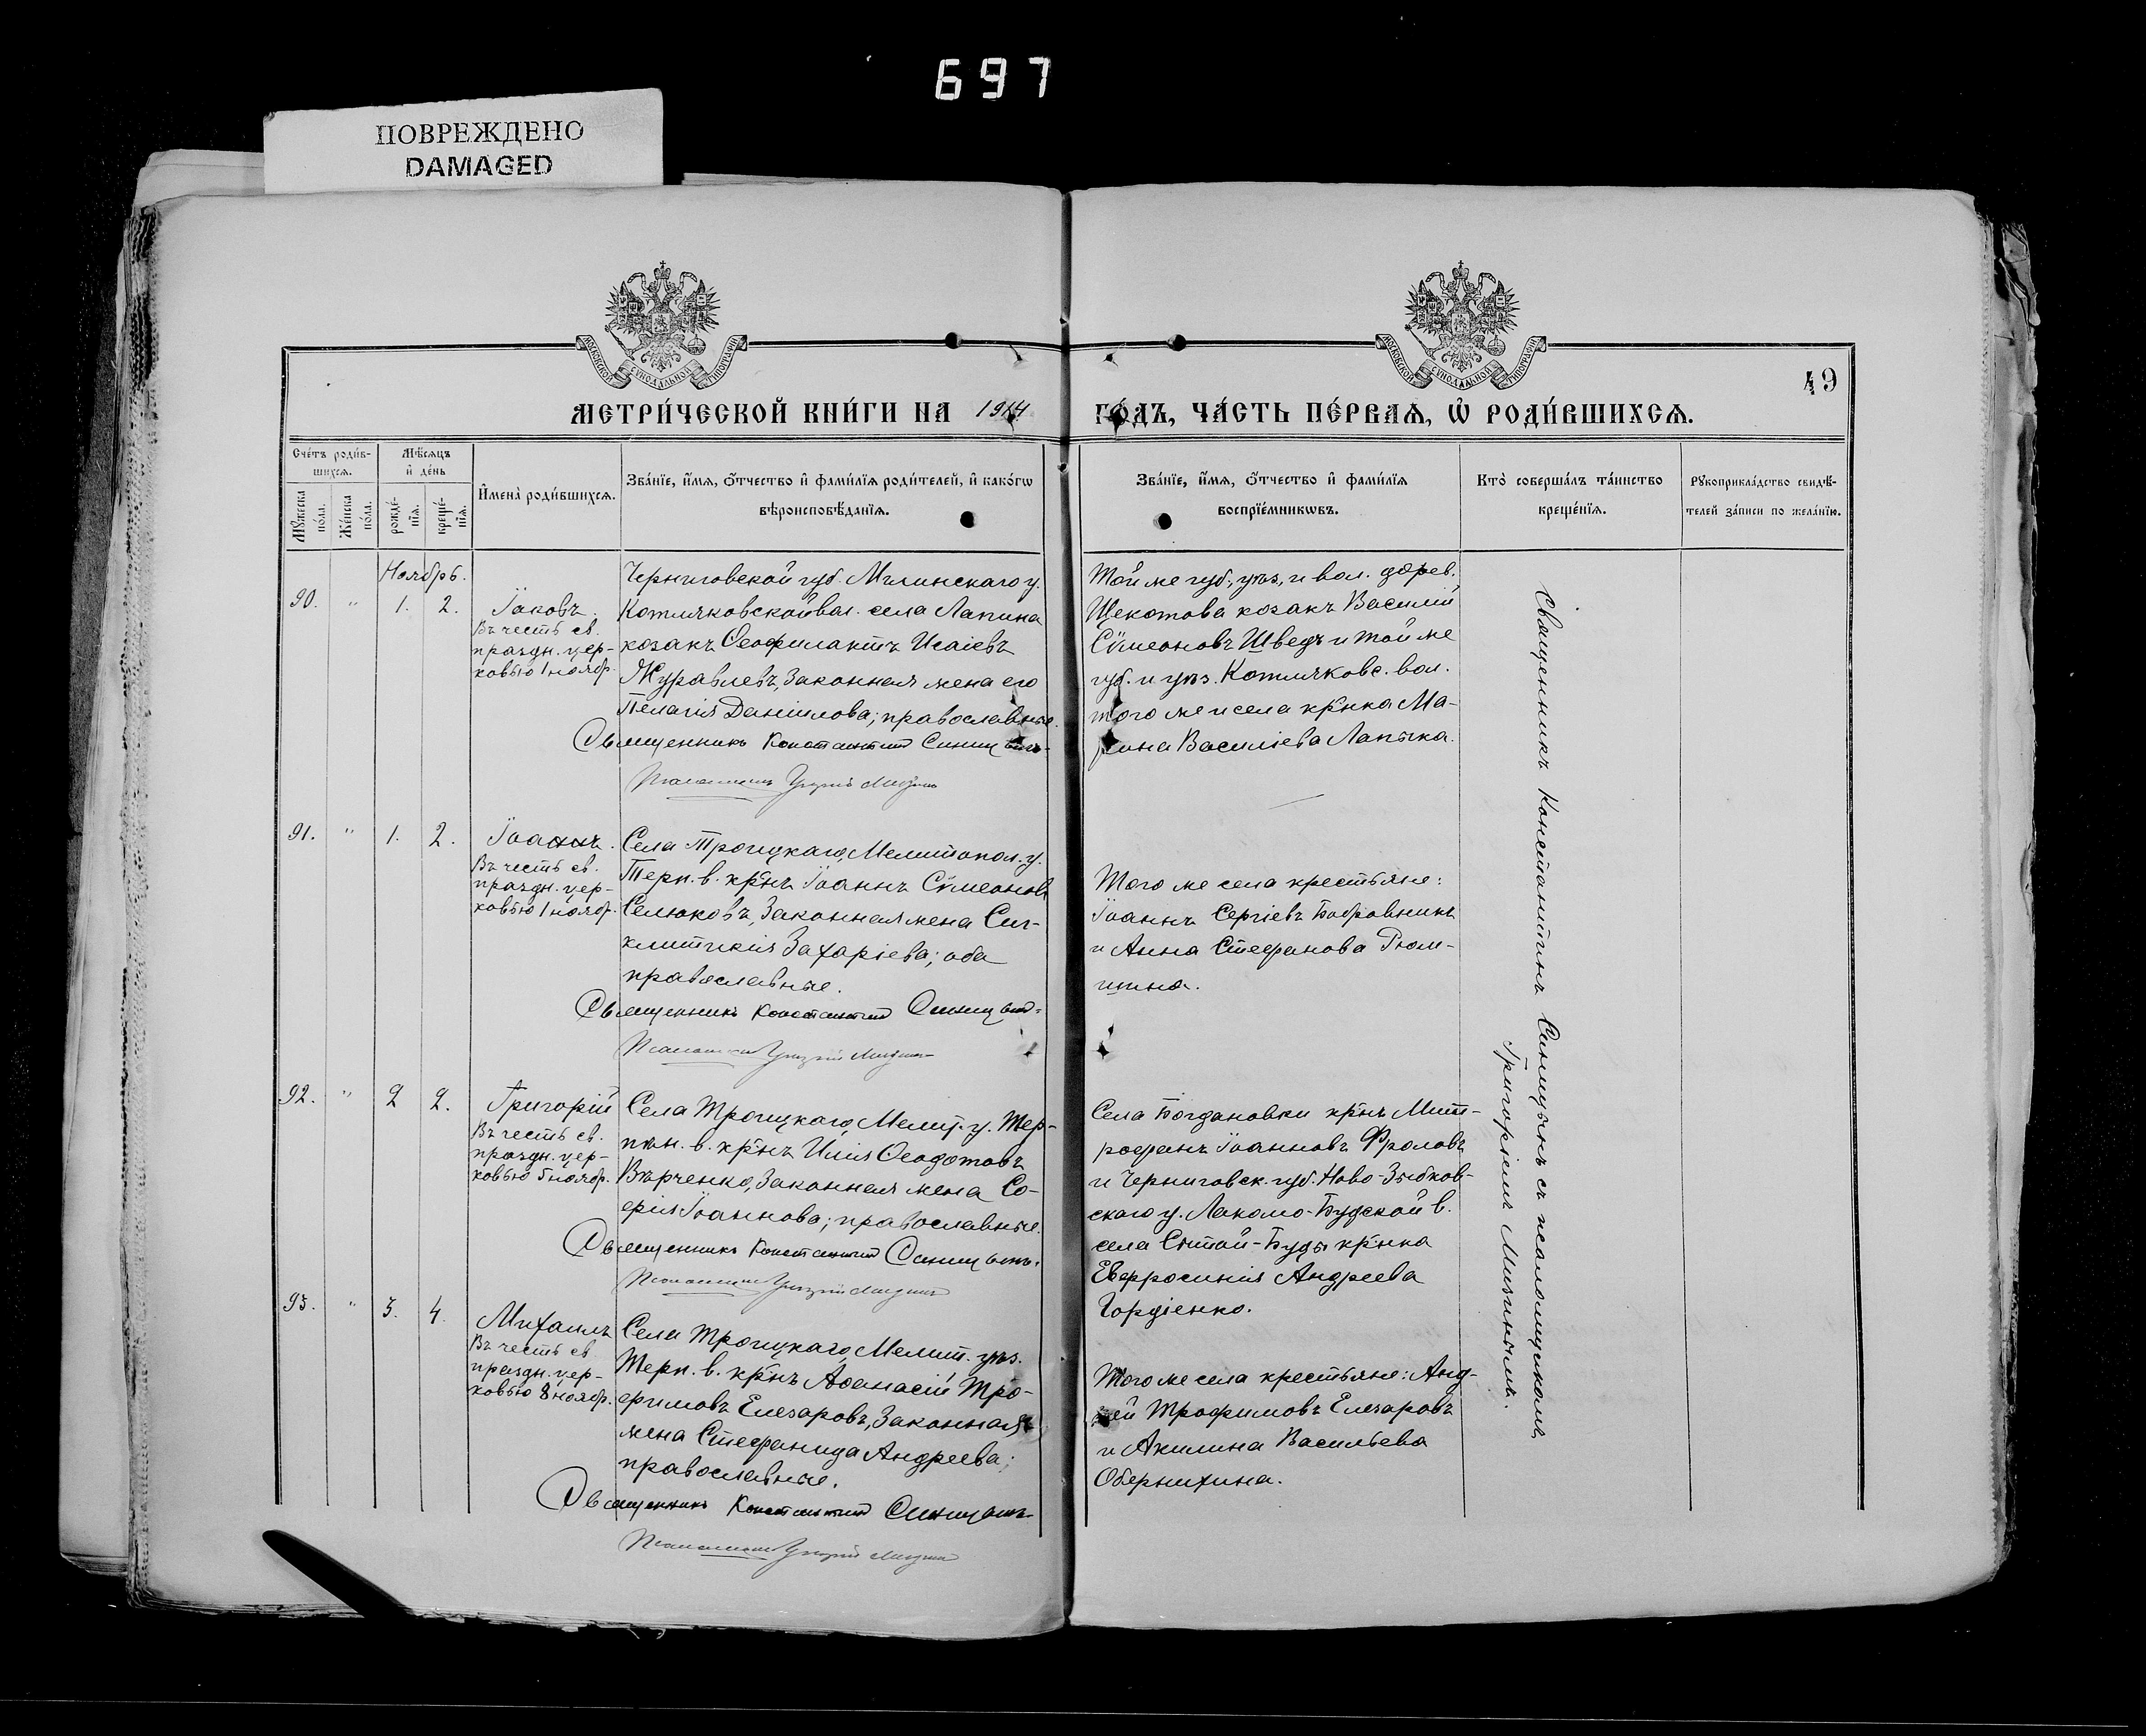 697
ПОВРЕЖДЕНО
DAMAGED
МОСКОВСКОЙ СУНОДАЛЬНОЙ ТИПОГРАФІИ
МОСКОВСКОЙ СУНОДАЛЬНОЙ ТИПОГРАФІИ
49
МЕТРИ́ЧЕСКОЙ КНИ́ГИ НА 1914 ГО́ДЪ, ЧА́СТЬ ПЕ́РВАЯ, Ѡ РОДИ́ВШИХСЯ.
Сче́тъ роди́в-
шихся.
Мѣ́сяцъ
и де́нь
Мужеска
пола.
Же́нска
по́ла.
рожде́-
нїя.
креще́-
нїя.
Имена̀ роди́вшихся.
Зва́нїе, и́мя, о́тчество и фами́лїя роди́телей, и како́гѡ
вѣроисповѣ́данїя.
Зва́нїе, и́мя, о́тчество и фами́лїя
воспрїе́мникѡвъ.
Кто̀ соверша́лъ та́инство
креще́нїя.
Рукоприкла́дство свидѣ́-
телей за́писи по жела́нїю.
Ноябрь.
90. " 1. 2.
Іаковъ.
Въ честь св.
праздн. цер-
ковью 1 ноябр.
Черниговской губ. Мглинскаго у.
Котляковской вол. села Лапина
козакъ Ѳеофилактъ Исаіевъ
Журавлевъ, законная жена его
Пелагія Даніилова; православные.
Священникъ Константинъ Синицынъ
Псаломщикъ Григорій Мизинъ
Той же губ., уѣз. и вол. дерев.
Щекотова козакъ Василій
Сѵмеоновъ Шведъ и той же
губ. и уѣз. Котляковс. вол.
того же и села кр-нка Ма-
рина Василіева Лапѣка.
91. " 1. 2.
Іоаннъ.
Въ честь св.
праздн. цер-
ковью 1 ноябр.
Села Троицкаго, Мелитопол. у.
Терп. в. кр-нъ Іоаннъ Сѵмеоновъ
Селюковъ, законная жена Син-
клитикія Захаріева; оба
православные.
Священникъ Константинъ Синицынъ
Псаломщикъ Григорій Мизинъ
Того же села крестьяне:
Іоаннъ Сергіевъ Бобровникъ
и Анна Стефанова Рюм-
шина.
92. " 2 2.
Григорій
Въ честь св.
праздн. цер-
ковью 5 ноябр.
Села Троицкаго, Мелит. у. Тер-
пѣн. в. кр-нъ Илія Ѳеодотовъ
Вѣрченко, законная жена Со-
фія Іоаннова; православные.
Священникъ Константинъ Синицынъ.
Псаломщикъ Григорій Мизинъ
Села Богдановки кр-нъ Мит-
рофанъ Іоанновъ Фроловъ
и Черниговск. губ. Ново-Зыбков-
скаго у. Лакомо-Будской в.
села Сытой-Буды кр-нка
Евфросинія Андреева
Гордіенко.
93. " 3. 4
Михаилъ
Въ честь св
праздн. цер-
ковью 8 ноябр.
Села Троицкаго, Мелит. уѣз.
Терп. в. кр-нъ Аѳанасій Тро-
фимовъ Елеаровъ, законная
жена Стефанида Андреева;
православные.
Священникъ Константинъ Синицынъ
Псаломщикъ Григорій Мизинъ
Того же села крестьяне: Анд-
рей Трофимовъ Елеаровъ
и Акилина Васильева
Обернихина.
Священникъ Константинъ Синицынъ съ псаломщикомъ
Григоріемъ Мизинымъ.